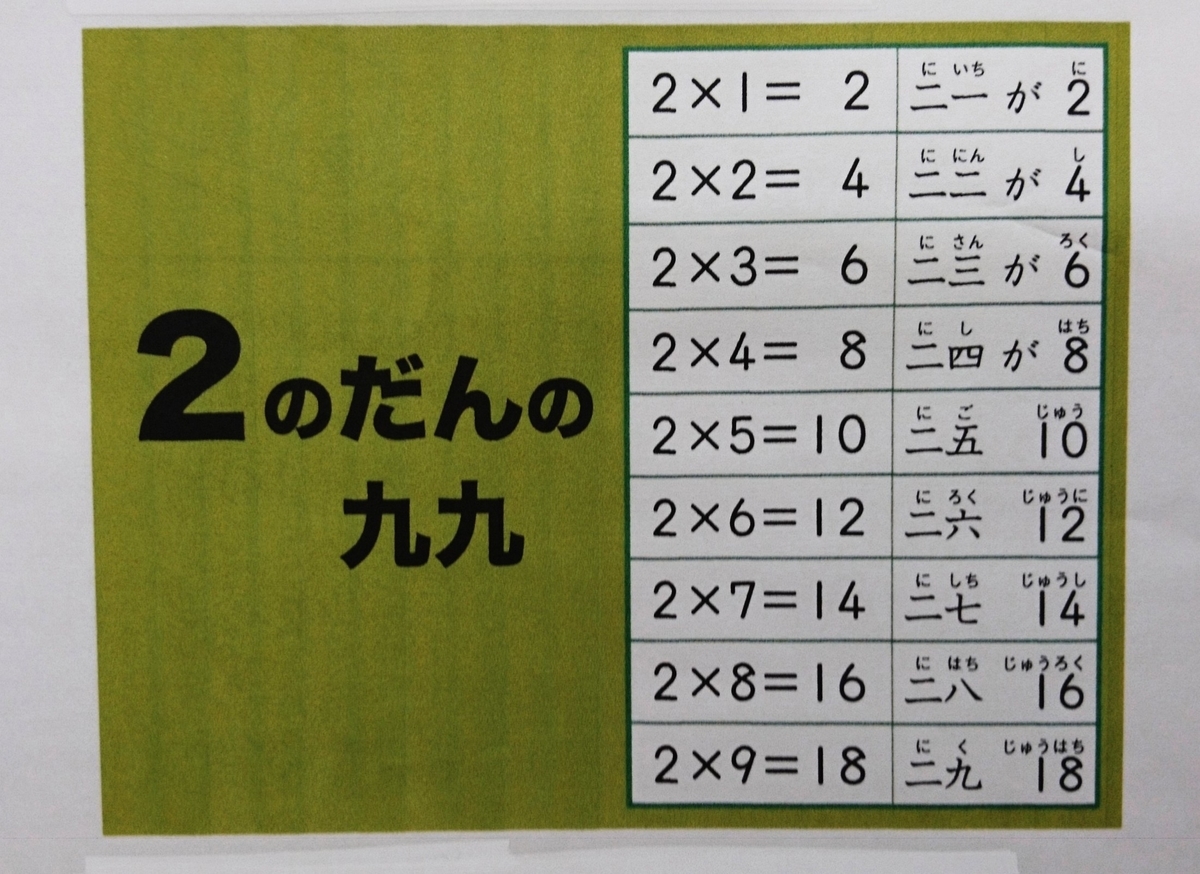 2のだんの
九九
2×1= 2 にいち に
二一 が 2
2×2= 4 ににん し
二二 が 4
2×3= 6 にさん ろく
二三 が 6
2×4= 8 にし はち
二四 が 8
2×5=10 にご じゅう
二五 10
2×6=12 にろく じゅうに
二六 12
2×7=14 にしち じゅうし
二七 14
2×8=16 にはち じゅうろく
二八 16
2×9=18 にく じゅうはち
二九 18